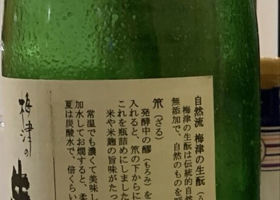 自然流 梅津の生酛（
梅津の生酛は伝統的自然
無添加で、自然のものを
笊（ざる）
発酵中の醪（もろみ）を
入れると、笊の下からに
これを瓶詰めにしました
米や米麹の旨味がたっ
常温でも濃くて美味し
加水してお燗すると、柔
夏は炭酸水で、倍くらい
梅津の